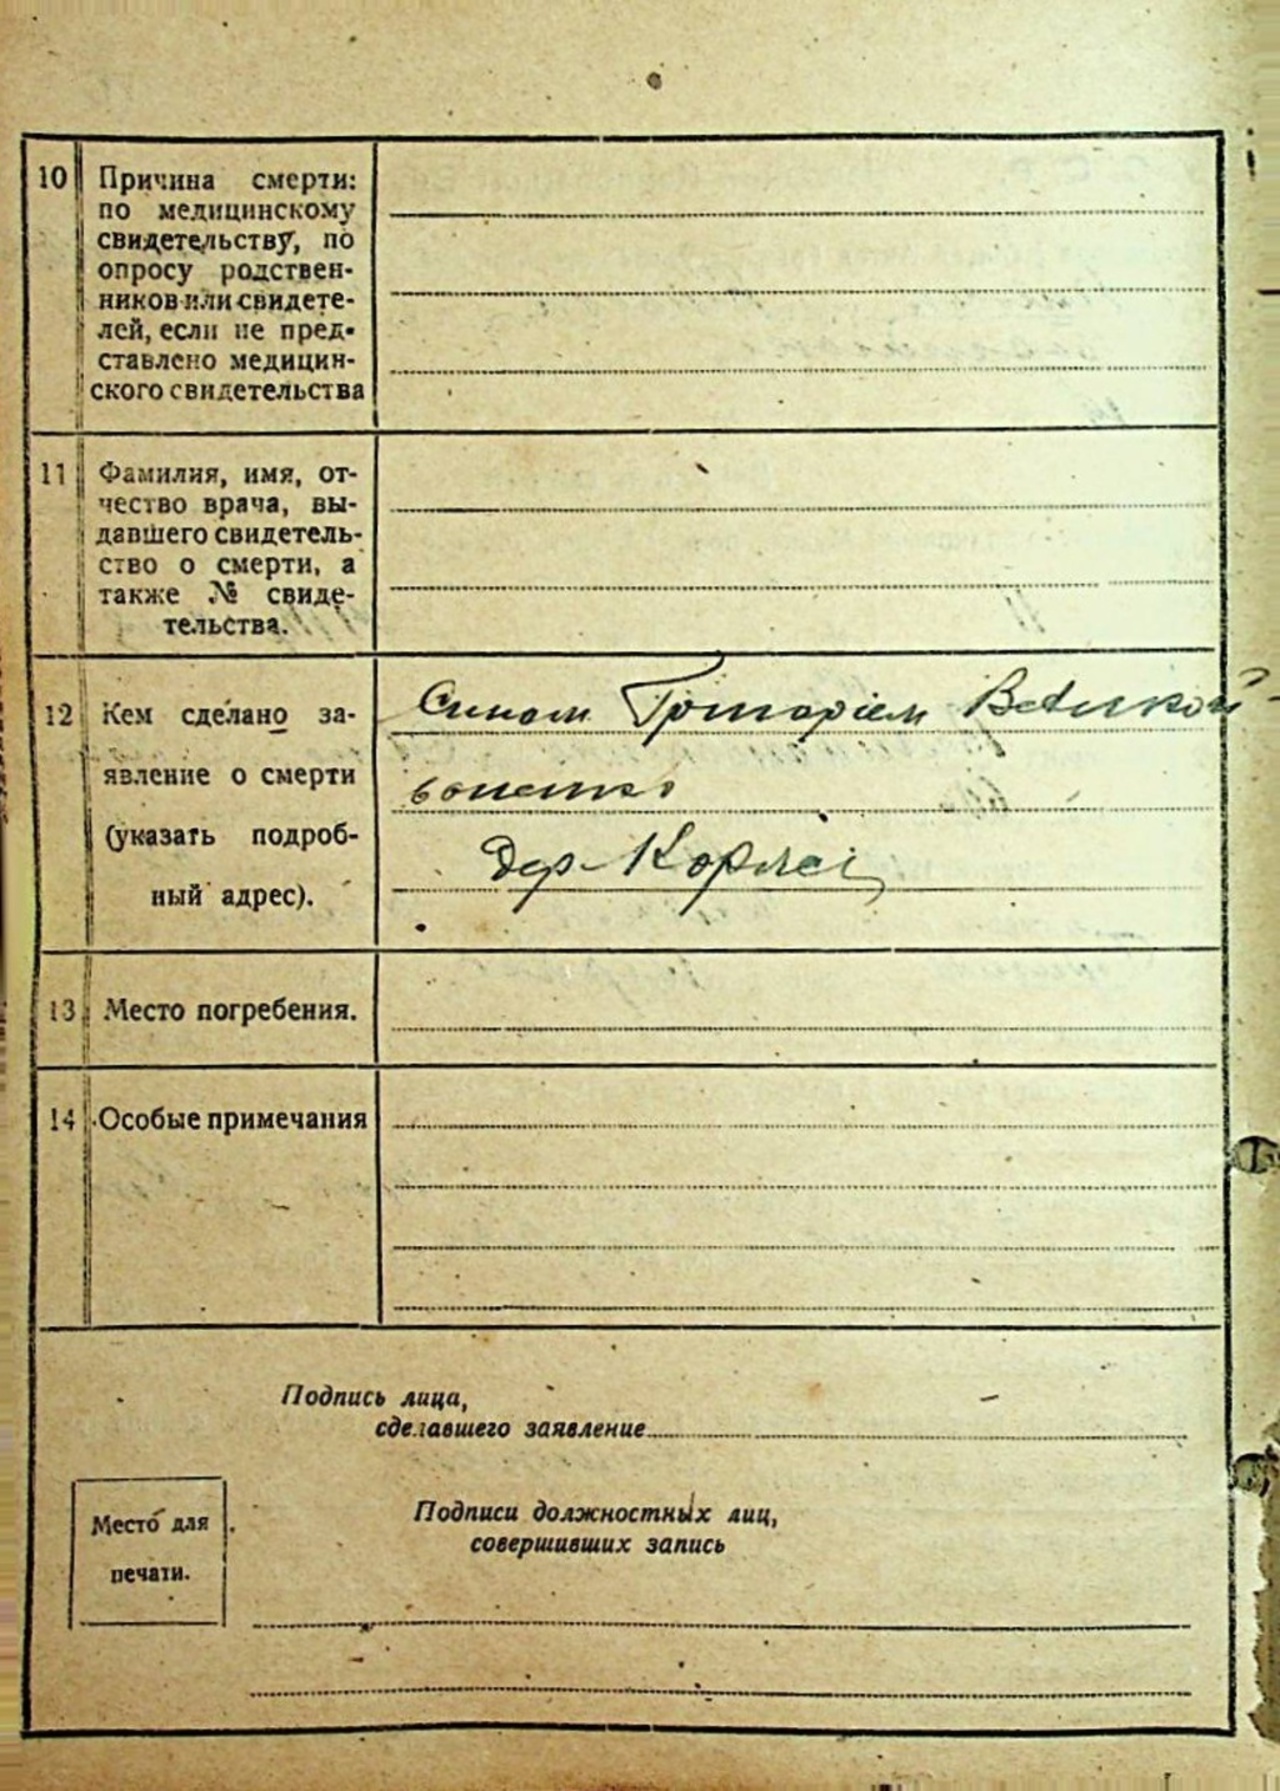 10 Причина смерти:
по медицинскому
свидетельству, по
опросу родствен-
ников или свидете-
лей, если не пред-
ставлено медицин-
ского свидетельства
11 Фамилия, имя, от-
чество врача, вы-
давшего свидетель-
ство о смерти, а
также № свиде-
тельства.
12 Кем сделано за-
явление о смерти
(указать подроб-
ный адрес).
Сином Григорієм
дер-
13 Место погребения.
14 Особые примечания
Подпись лица,
сделавшего заявление
Место для
печати.
Подписи должностных лиц,
совершивших запись